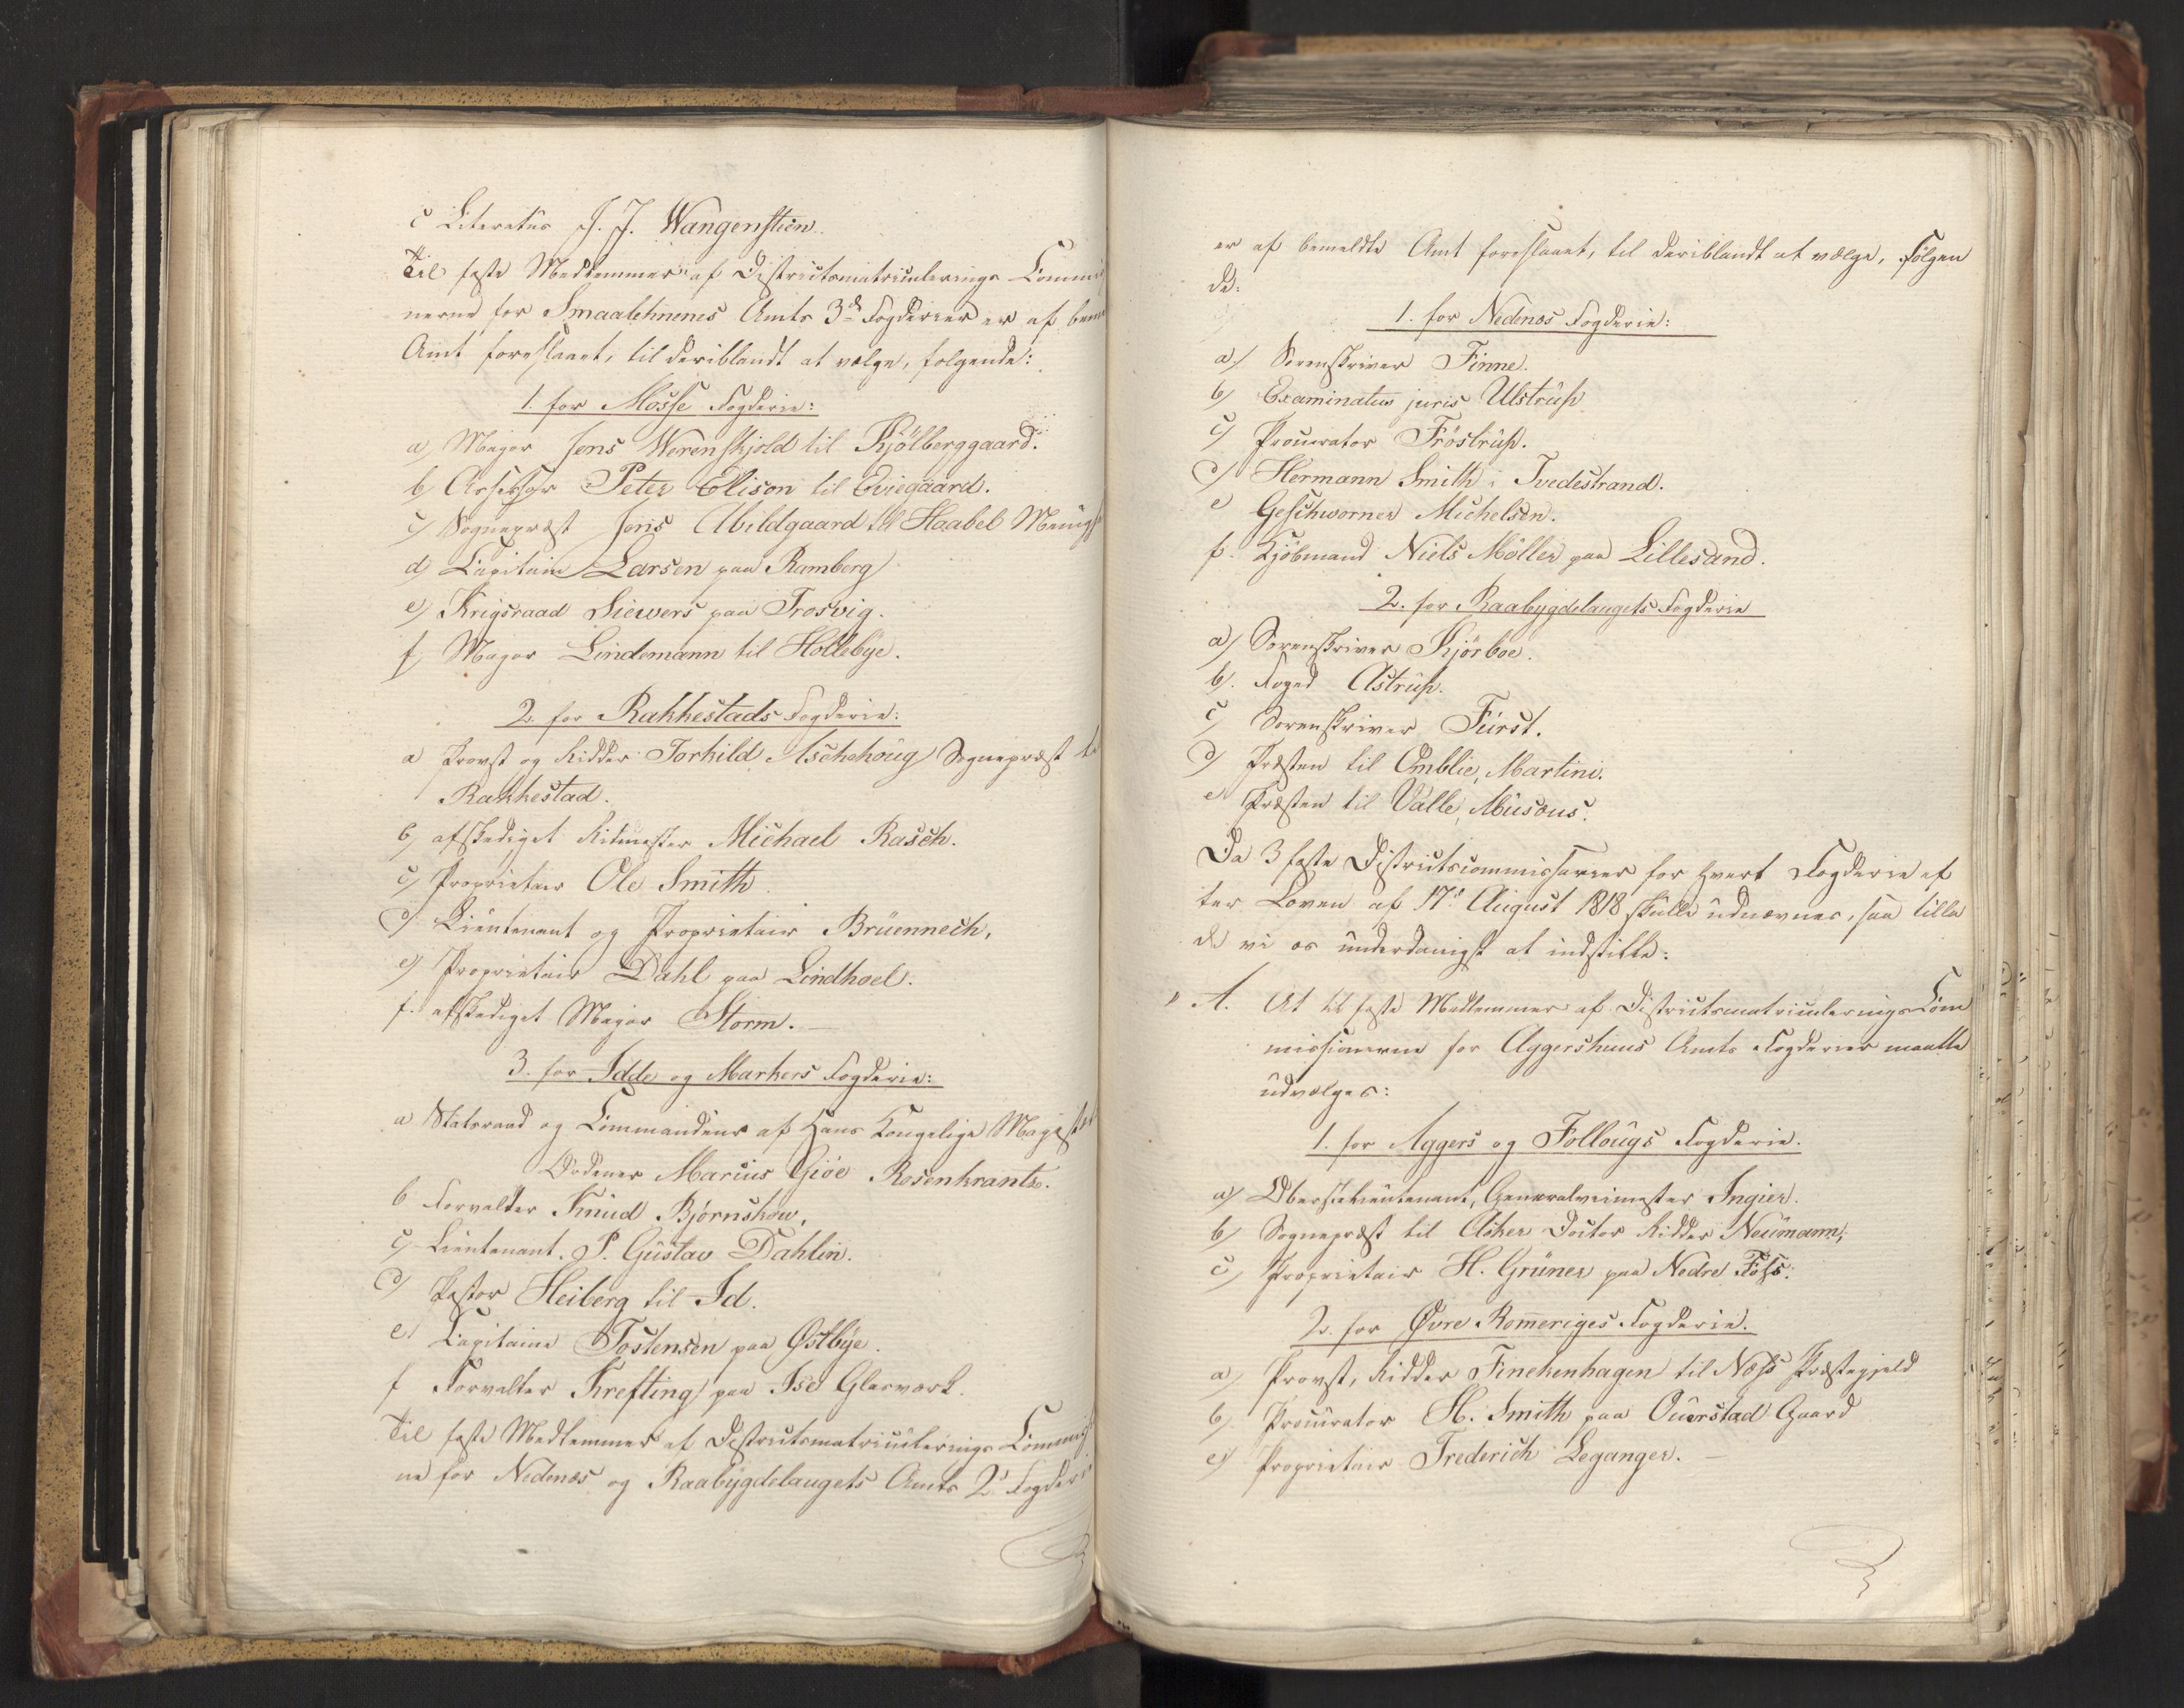 c Literatus J. J. Wangenstien.
Til faste Medlemmer af Districtsmatriculerings Commis
nerne for Smaalehnenes Amts 3de Fogderier er af bem
Amt foreslaaet, til deriblandt at vælge, følgende:
1. for Mosse Fogderie:
a) Major Jens Werenskjold til Kjølberggaard.
b) Assessor Peter Elison til Eviegaard.
c) Sognepræst Jens Abildgaard til Haabel Menigh
d) Capitain Larsen paa Ramberg
e) Krigsraad Siewers paa Trosvig.
f) Major Lindemann til Hollebye.
2. for Rakkestads Fogderie:
a Provst og Ridder Torkild Aschehoug Sognepræst til
Rakkestad.
b) afskediget Ritmester Michael Rasch.
c) Proprietair Ole Smith.
d) Lieutenant og Proprietair Brüennech,
e) Proprietair Dahl paa Lindhoel.
f. afskediget Major Storm.
3. for Idde og Markers Fogderie:
a Statsraad og Commandeur af Hans Kongelige Majestæts
Ordener Marcus Giöe Rosenkrantz.
b Forvalter Knud Bjørnskow,
c) Lieutenant. P. Gustav Dahlin.
d) Pastor Heiberg til Id.
e) Capitaine Tostensen paa Østbye.
f Forvalter Krefting paa Ise Glasværk.
Til faste Medlemmer af Districtsmatriculerings Commiss
ne for Nedenæs og Raabygdelaugets Amts 2de Fogderi
er af bemeldte Amt foreslaaet, til deriblandt at vælge, følgen
de:
1. for Nedenæs Fogderie:
a) Sorenskriver Finne.
b) Examinatus juris Ulstrup
c) Procurator Fröstrup.
d) Hermann Smith i Tvedestrand.
e Geschworner Michelsen.
f. Kjöbmand Niels Möller paa Lillesand.
2. for Raabygdelaugets Fogderie
a) Sorenskriver Kjørboe.
b). Foged Astrup.
c) Sorenskriver Fürst.
d) Præsten til Omblie, Martini.
e Præsten til Valle, Musæus.
Da 3 faste Districtscommissairer for hvert Fogderie ef
ter Loven af 17de August 1818 skulle udnævnes, saa tilla
de vi os underdanigst at indstille:
" A. At til faste Medlemmer af Districtsmatriculerings Com
missionerne for Aggershuus Amts Fogderier maatte
udvælges:
1. for Aggers og Follougs Fogderie.
a) Oberstlieutenant, Generalveimester Ingier.
b) Sognepræst til Asker Doctor Ridder Neumann,
c) Proprietair H. Grüner paa Nedre Foss.
2. for Øvre Romeriges Fogderie.
a) Provst, Ridder Finckenhagen til Næss Præstegjeld
b) Procurator H. Smith paa Ouerstad Gaard
c) Proprietair Frederich Leganger.